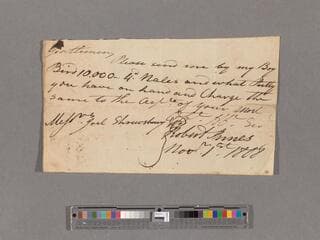 Gentlemen, Please send me by my Boy
Bird 10,000 4d Nales and what Putty
you have on hand and Charge the
same to the acpt of your Most
Mess Joel Shrewsbury
Robert Innes
Novr 1st